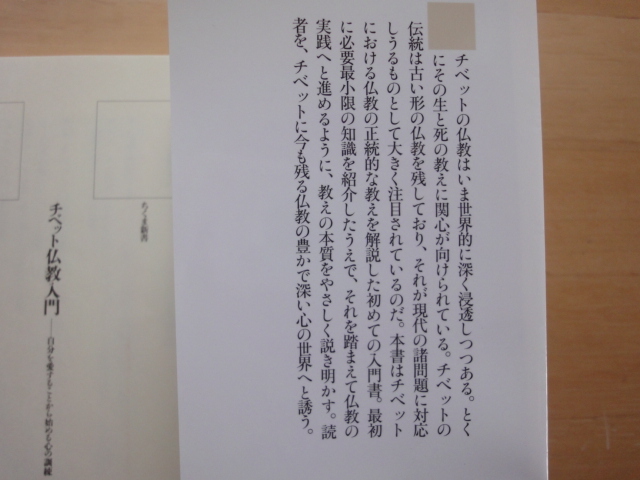 チベットの仏教はいま世界的に深く浸透しつつある。とく
にその生と死の教えに関心が向けられている。チベットの
伝統は古い形の仏教を残しており、それが現代の諸問題に対応
しうるものとして大きく注目されているのだ。本書はチベット
における仏教の正統的な教えを解説した初めての入門書。最初
に必要最小限の知識を紹介したうえで、それを踏まえて仏教の
実践へと進めるように、教えの本質をやさしく説き明かす。読
者を、チベットに今も残る仏教の豊かで深い心の世界へと誘う。
ちくま新書
チベット仏教入門──自分を愛することから始める心の訓練